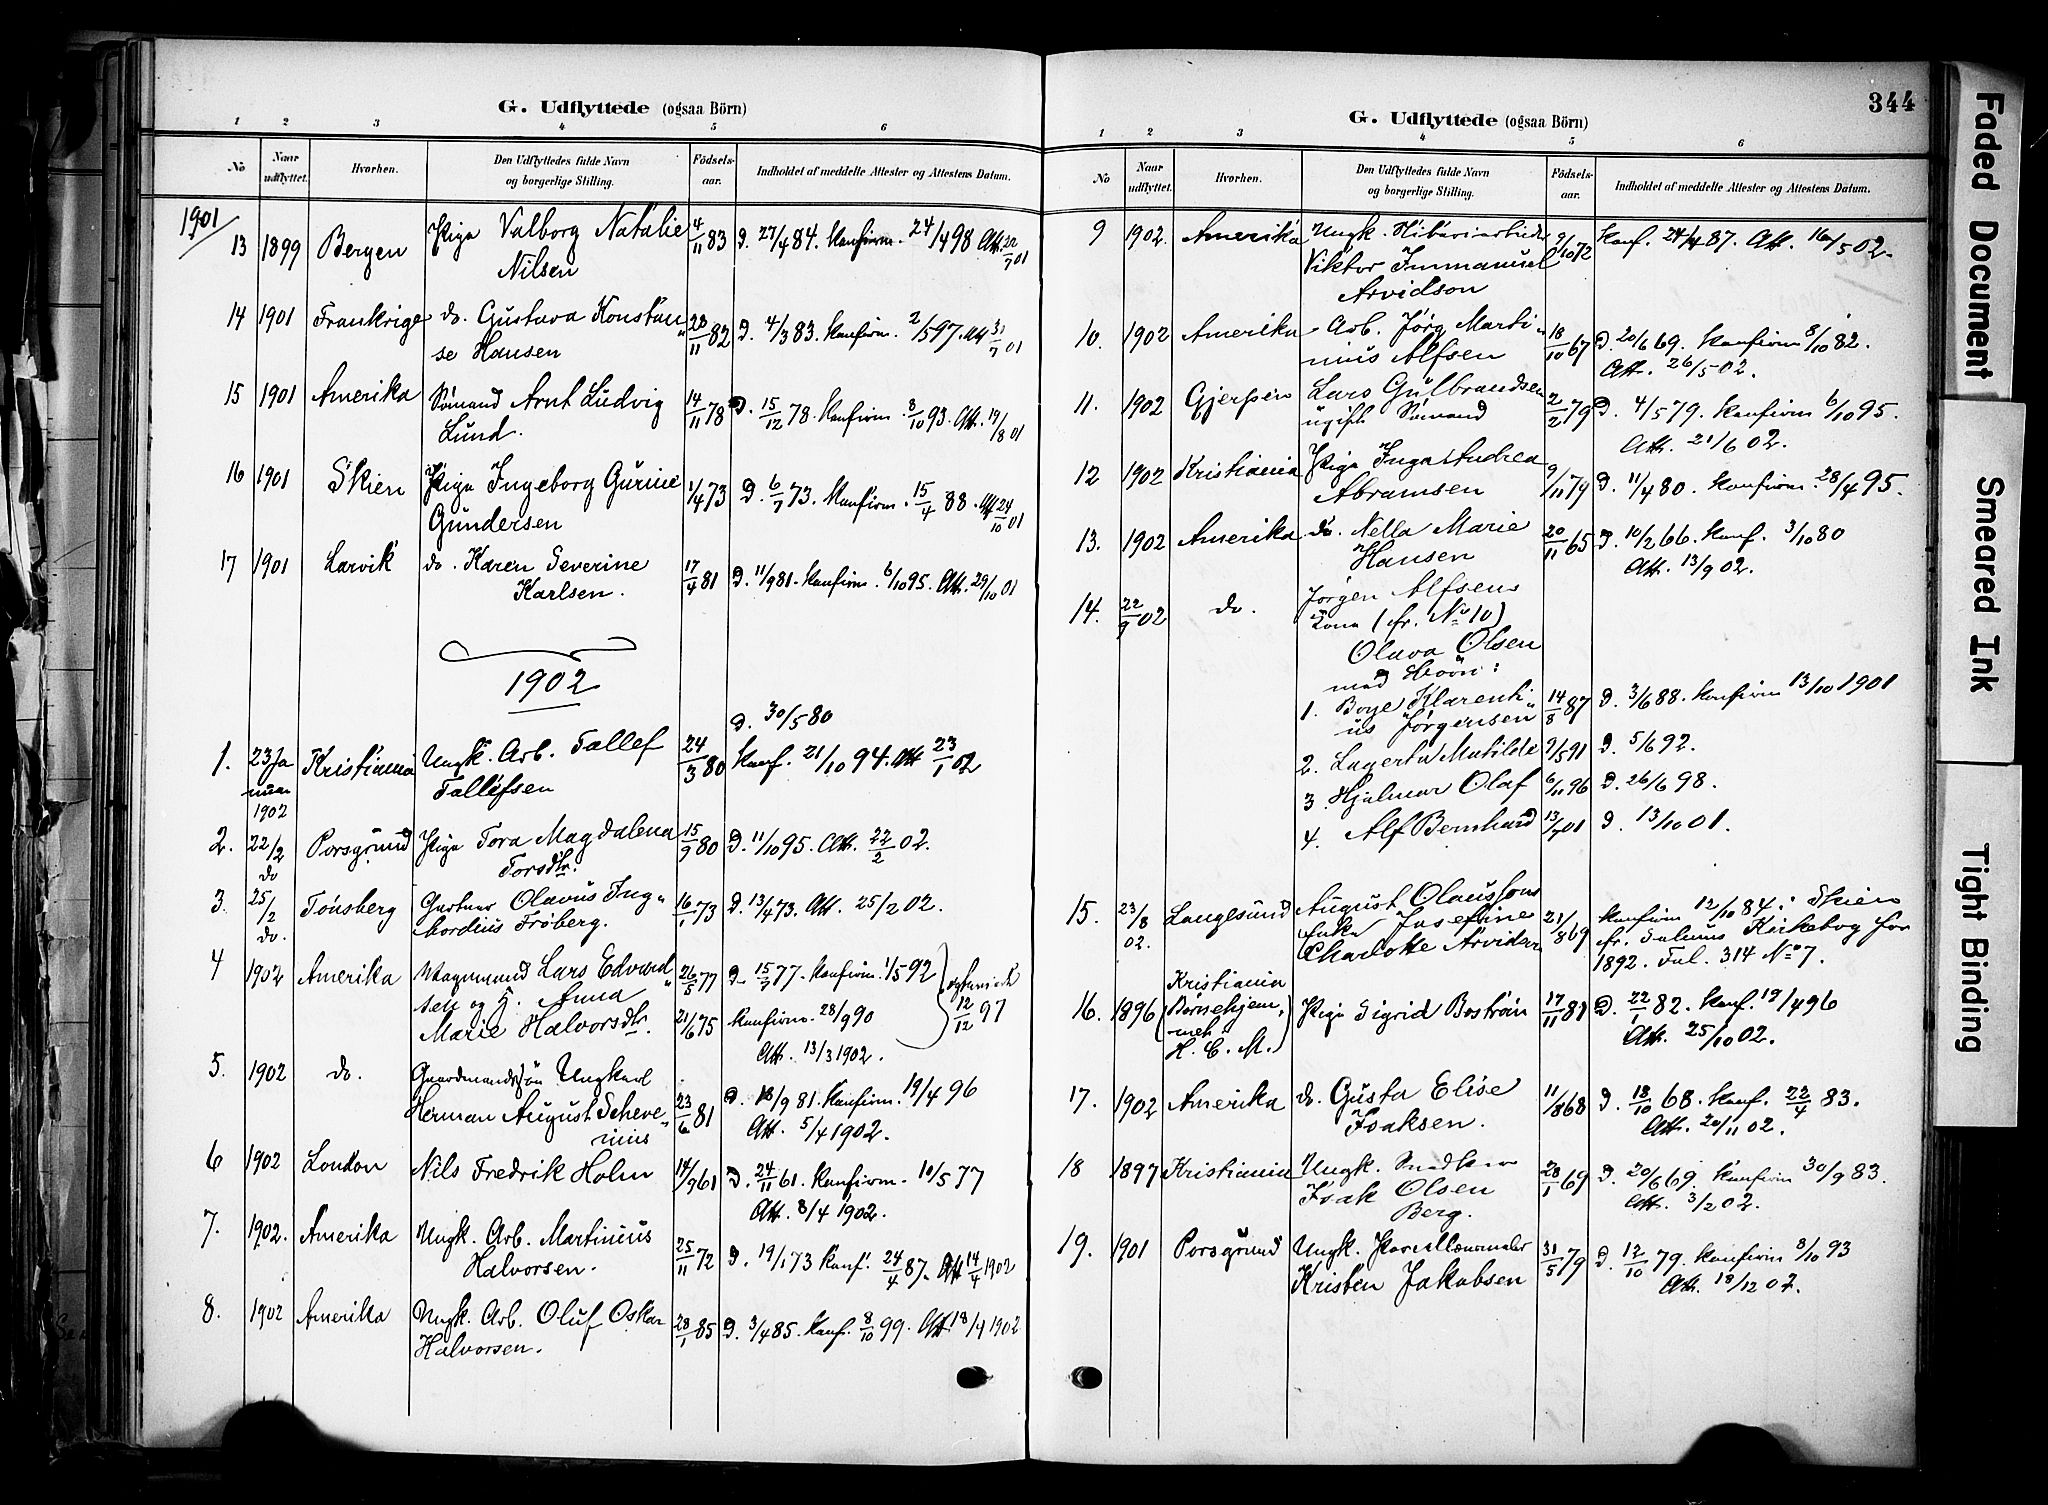 G. Udflyttede (ogsaa Börn)
1 2 3 4 5 6
No Naar udflyttet. Hvorhen. Den Udflyttedes fulde Navn og borgerlige Stilling. Födsels-aar. Indholdet af meddelte Attester og Attestens Datum.
1901
13 1899 Bergen Pige Valborg Natalie 4/11 83 D. 27/4 84. Konfirm. 24/4 98 Att. 22/7 01
Nilsen
14 1901 Frankrige do. Gustava Konstan 23/11 82 D. 4/3 83. Konfirm. 2/5 97. Att 31/7 01
se Hansen
15 1901 Amerika Sömand Arnt Ludvig 14/11 78 D. 15/12 78. Konfirm. 8/10 93. Att. 19/8 01
Lund.
16 1901 Skien Pige Ingeborg Gurine 1/4 73 D. 6/7 73. Konfirm. 15/4 88. Att 24/10 01
Gundersen
17 1901 Larvik do. Karen Severine 17/4 81 D. 11/9 81. Konfirm. 6/10 95. Att. 29/10 01
Karlsen.
1902
D. 30/5 80
1. 23 Ja Kristiania Ungk. Arb. Tallef 24/3 80 Konf. 21/10 94. Att 23/1 02
nuar Tallefsen
1902
2. 22/2 Porsgrund Pige Tora Magdalena 15/9 80 D. 11/10 95. Att. 22/2 02.
do Torsdtr.
3. 25/2 Tönsberg Gartner Olavus Ing= 16/1 73 D. 13/4 73. Att. 25/2 02.
do. bordius Fröberg.
4 1902 Amerika Lars Edvard 26/5 77 D. 15/7 77. Konfirm. 1/5 92
sen og H. Anna 12/12 97
Marie Halvorsdtr. 21/6 75 Konfirm. 28/9 90
Att. 13/3 1902.
5. 1902 do. Gaardmandssön Ungkarl
Herman August Scheve= 23/6 81 D. 18/9 81. Konfirm. 19/4 96
nius Att. 5/4 1902.
6 1902 London Nils Fredrik Holm 14/9 61 D. 24/11 61. Konfirm. 10/5 77
Att. 8/4 1902.
7. 1902. Amerika Ungk. Arb. Martinius 25/11 72 D. 19/1 73 Konf. 24/4 87. Att 14/4 1902
Halvorsen.
8. 1902 Amerika Ungk. Arb. Oluf Oskar 28/1 85 D. 3/4 85. Konf. 8/10 99. Att. 18/4 1902
Halvorsen.
344
G. Udflyttede (ogsaa Börn)
1 2 3 4 5 6
No Naar udflyttet. Hvorhen. Den Udflyttedes fulde Navn og borgerlige Stilling. Födsels-aar. Indholdet af meddelte Attester og Attestens Datum.
9 1902. Amerika Ungk. 9/10 72 Konf. 24/4 87. Att. 16/5 02.
Viktor Immanuel
Arvidson
10. 1902 Amerika Arb. Jörg Marti= 18/10 67 D. 20/6 69. Konfirm 8/10 82.
nius Alfsen Att. 26/5 02.
11. 1902 Gjerpen Lars Gulbrandsen 2/2 79 D. 4/5 79. Konfirm 6/10 95.
ugift Sömand Att. 21/6 02.
12 1902 Kristiania Pige Inga Andrea 9/11 79 D. 11/4 80. Konfirm. 28/4 95.
Abramsen
13. 1902 Amerika do. Nella Marie 20/11 65 D. 10/2 66. Konf. 3/10 80
Hansen Att. 13/9 02.
14. 22/9 02 do. Jörgen Alfsens
Kone (fr. No 10)
Olava Olsen
med Börn:
1. Boye Klarenti 14/8 87 D. 3/6 88. Konfirm 13/10 1901
us Jörgensen
2. Lagerta Matilde 9/5 91 D. 5/6 92.
3. Hjalmar Olaf 6/11 96 D. 26/6 98.
4. Alf Bernhard 13/7 01 D. 13/10 01.
15. 23/8 02. Langesund August Olaussons 21/8 69 Konfirm 12/10 84 i Skien
Enke Josefine fr. Solums Kirkebog for
Charlotte Arvidsen 1892. Fol. 314 No 7.
Kristiania
16. 1896 (Börnehjem, Pige Sigrid Boström 17/11 81 D. 22/1 82. Konf. 19/4 96
met Att. 25/10 02.
H. C. M.)
17. 1902 Amerika do. Gusta Elise 11/8 68 D. 18/10 68. Konf. 22/4 83.
Isaksen. Att. 20/11 02.
18 1897 Kristiania Ungk. Snedker 28/1 69 D. 20/6 69. Konfirm 30/9 83.
Isak Olsen Att. 3/2 02.
Berg.
19. 1901 Porsgrund Ungk. Porcellænsmaler 31/5 79 D. 12/10 79. Konfirm 8/10 93
Kristen Jakobsen Att. 18/12 02.
Faded Document
Smeared Ink
Tight Binding